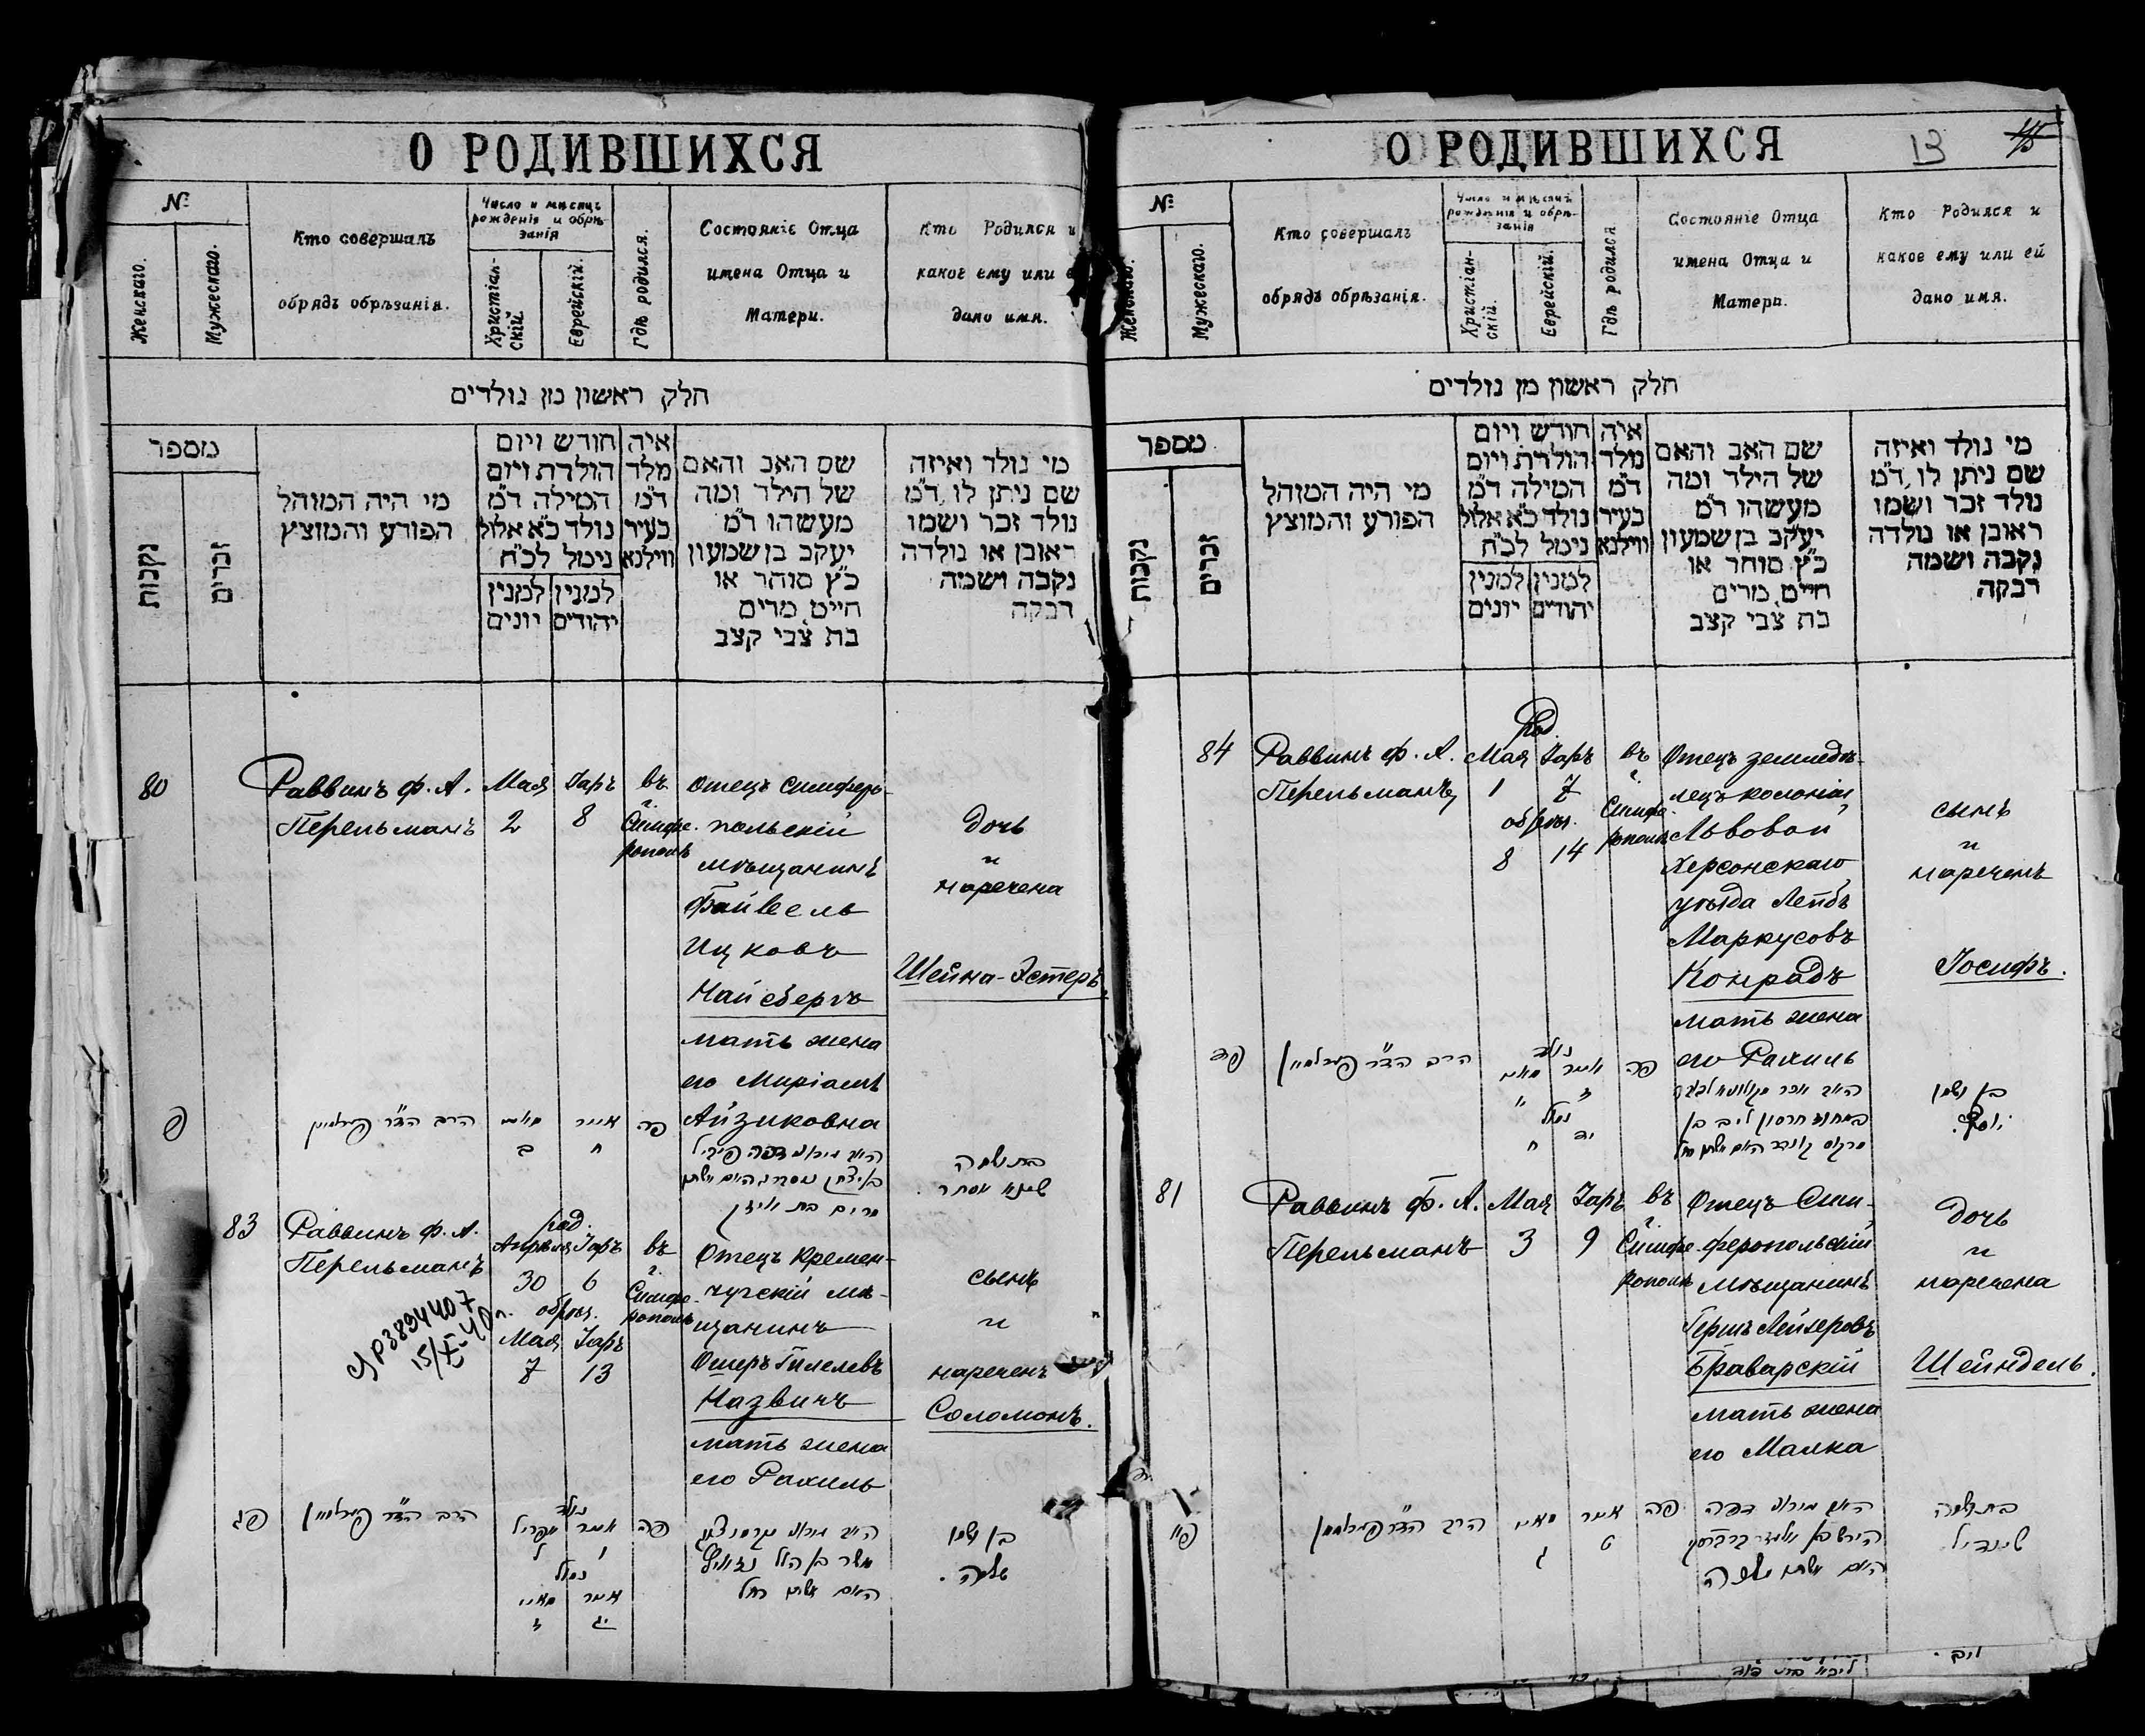 О РОДИВШИХСЯ
№
Женскаго.
Мужескаго.
Кто совершалъ
обрядъ обрѣзанія.
Число и мѣсяцъ
рожденія и обрѣ-
занія
Христіан-
скій.
Еврейскій.
Гдѣ родился.
Состояніе Отца
имена Отца и
Матери.
Кто Родился и
какое ему или
дано имя.
חלק ראשון מן נולדים
מספר
נקבות
זכרים
מי היה המוהל
הפורע והמוצץ
חודש ויום
הולדת ויום
המילה ד״מ
נולד כ״א אלול
נימל לכ״ח
למנין יונים
למנין יהודים
איה
מלד
ד״מ
בעיר
ווילנא
שם האב והאם
של הילד ומה
מעשהו ד״מ
יעקב בן שמעון
כ״ץ סוחר או
חייט מרים
בת צבי קצב
מי נולד ואיזה
שם ניתן לו ד״מ
נולד זכר ושמו
ראובן או נולדה
נקבה ושמה
רבקה
80
Раввинъ Ф. А.
Перельманъ
Мая
2
Іаръ
8
въ
г.
Симфе-
рополь
Отецъ Симферо-
польскій
мѣщанинъ
Файвель
Ицковъ
Найсбергъ
мать жена
его Миріамъ
Айзиковна
дочь
и
наречена
Шейна-Эстеръ
פ
הרב הד״ר פערלמאן
מאיא
ב
אייר
ח
פה
בת ושמה
שיינא אסתר
83
Раввинъ Ф. А.
Перельманъ
род.
Апрѣля Іаръ
30 6
обрѣз.
Мая Іаръ
7 13
въ
г.
Симфе-
рополь
Отецъ Кремен-
чугскій мѣ-
щанинъ
Ошеръ Гилелевъ
Назвичъ
мать жена
его Рахиль
сынъ
и
нареченъ
Соломонъ.
פג
הרב הד״ר פערלמאן
נולד
אייר אפריל
ו ל
נמול
אייר מאיא
יג ז
פה
האם אשתו רחל
בן ושמו
שלמה.
О РОДИВШИХСЯ
13
№
Женскаго.
Мужескаго.
Кто совершалъ
обрядъ обрѣзанія.
Число и мѣсяцъ
рожденія и обрѣ-
занія
Христіан-
скій.
Еврейскій.
Гдѣ родился
Состояніе Отца
имена Отца и
Матери.
Кто Родился и
какое ему или ей
дано имя.
חלק ראשון מן נולדים
מספר
נקבות
זכרים
מי היה המוהל
הפורע והמוצץ
חודש ויום
הולדת ויום
המילה ד״מ
נולד כ״א אלול
נימל לכ״ח
למנין יונים
למנין יהודים
איה
מלד
ד״מ
בעיר
ווילנא
שם האב והאם
של הילד ומה
מעשהו ד״מ
יעקב בן שמעון
כ״ץ סוחר או
חייט מרים
בת צבי קצב
מי נולד ואיזה
שם ניתן לו ד״מ
נולד זכר ושמו
ראובן או נולדה
נקבה ושמה
רבקה
84
Раввинъ Ф. А.
Перельманъ
род.
Мая Іаръ
1 7
обрѣз.
8 14
въ
г.
Симфе-
рополь
Отецъ земледѣ-
лецъ колоніи
Львовой
Херсонскаго
уѣзда Лейбъ
Маркусовъ
Конрадъ
мать жена
его Рахиль
сынъ
и
нареченъ
Іосифъ.
פד
הרב הד״ר פערלמאן
נולד
אייר מאיא
ז
נמול
יד ח
פה
בן ושמו
יוסף.
81
Раввинъ Ф. А.
Перельманъ
Мая
3
Іаръ
9
въ
г.
Симфе-
рополь
Отецъ Сим-
феропольскій
мѣщанинъ
Гершъ Лейзеровъ
Браварскій
мать жена
его Малка
дочь
и
наречена
Шейндель.
הרב הד״ר פערלמאן
מאיא
ג
אייר
ט
פה
האם אשתו מלכה
בת ושמה
שיינדיל.